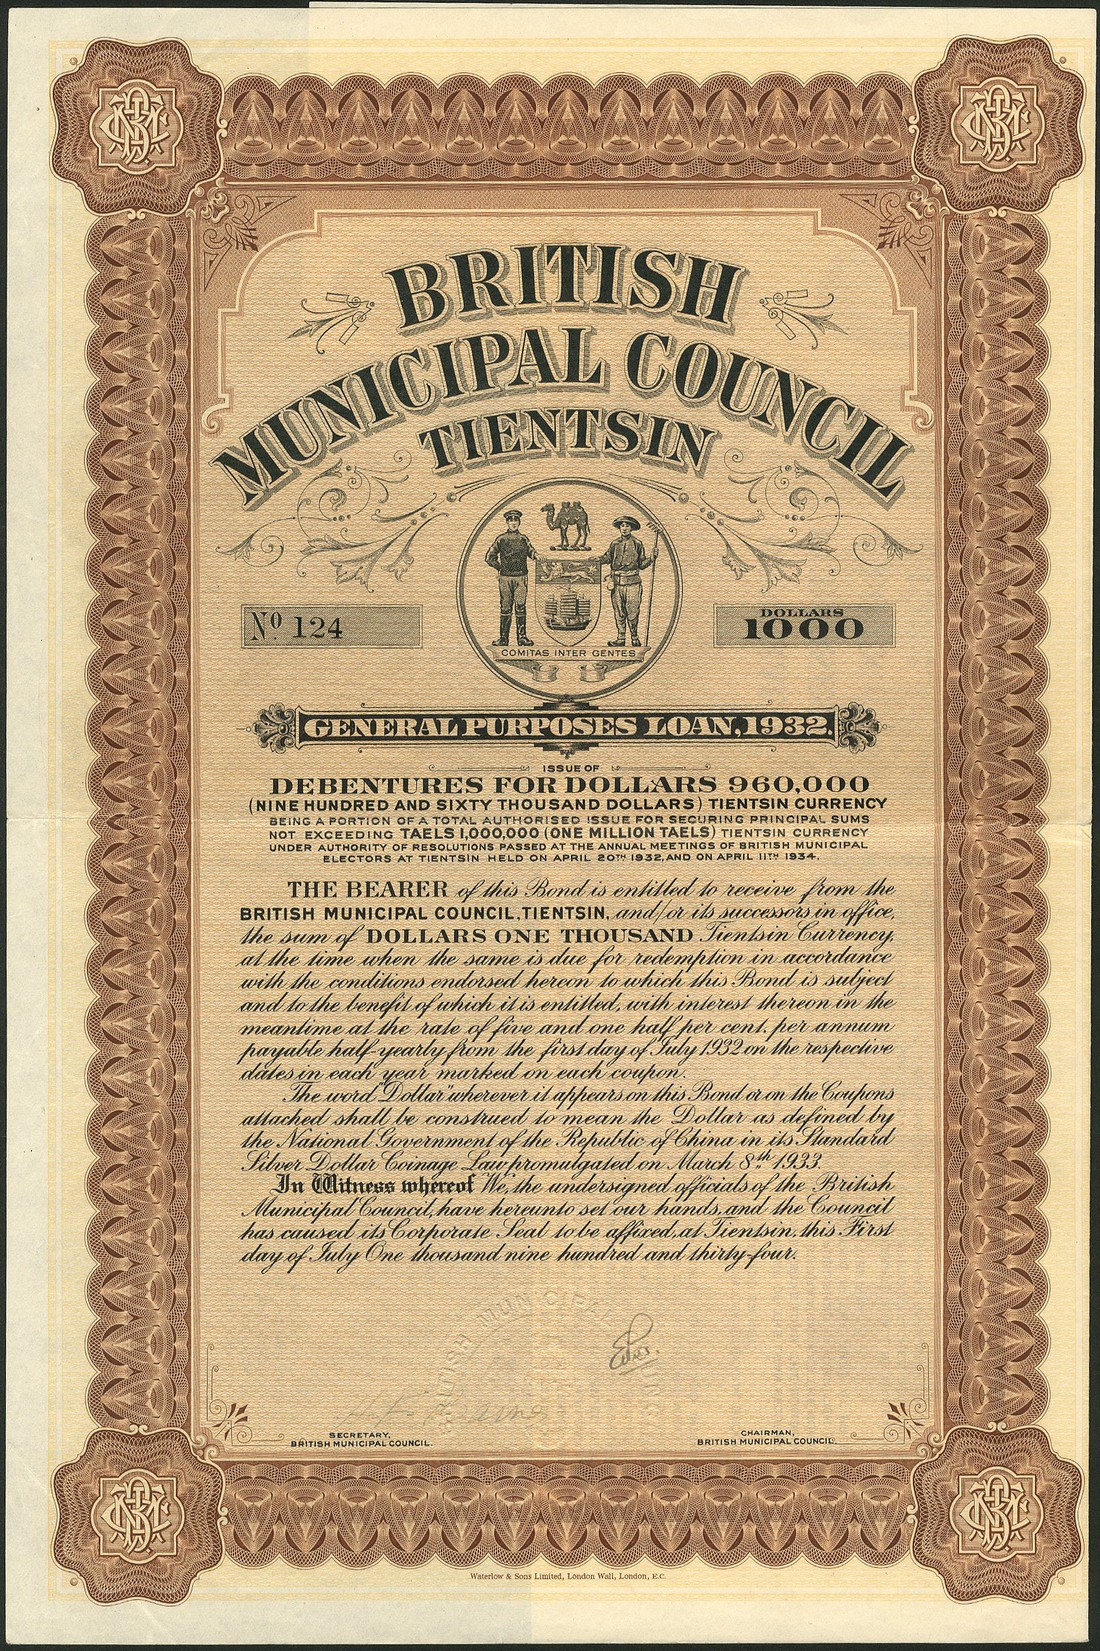 BRITISH
MUNICIPAL COUNCIL
TIENTSIN
Nº 124
DOLLARS
1000
COMITAS INTER GENTES
GENERAL PURPOSES LOAN, 1932.
ISSUE OF
DEBENTURES FOR DOLLARS 960,000
(NINE HUNDRED AND SIXTY THOUSAND DOLLARS) TIENTSIN CURRENCY
BEING A PORTION OF A TOTAL AUTHORISED ISSUE FOR SECURING PRINCIPAL SUMS
NOT EXCEEDING TAELS 1,000,000 (ONE MILLION TAELS) TIENTSIN CURRENCY
UNDER AUTHORITY OF RESOLUTIONS PASSED AT THE ANNUAL MEETINGS OF BRITISH MUNICIPAL
ELECTORS AT TIENTSIN HELD ON APRIL 20TH 1932, AND ON APRIL 11TH 1934.
THE BEARER of this Bond is entitled to receive from the
BRITISH MUNICIPAL COUNCIL, TIENTSIN, and/or its successors in office,
the sum of DOLLARS ONE THOUSAND Tientsin Currency,
at the time when the same is due for redemption in accordance
with the conditions endorsed hereon to which this Bond is subject
and to the benefit of which it is entitled, with interest thereon in the
meantime at the rate of five and one half per cent. per annum
payable half-yearly from the first day of July 1932 on the respective
dates in each year marked on each coupon.
The word "Dollar" wherever it appears on this Bond or on the Coupons
attached shall be construed to mean the Dollar as defined by
the National Government of the Republic of China in its Standard
Silver Dollar Coinage Law promulgated on March 8th 1933.
In Witness whereof We, the undersigned officials of the British
Municipal Council, have hereunto set our hands, and the Council
has caused its Corporate Seal to be affixed, at Tientsin, this First
day of July One thousand nine hundred and thirty-four.
BRITISH MUNICIPAL COUNCIL
SECRETARY,
BRITISH MUNICIPAL COUNCIL.
CHAIRMAN,
BRITISH MUNICIPAL COUNCIL.
Waterlow & Sons Limited, London Wall, London, E.C.